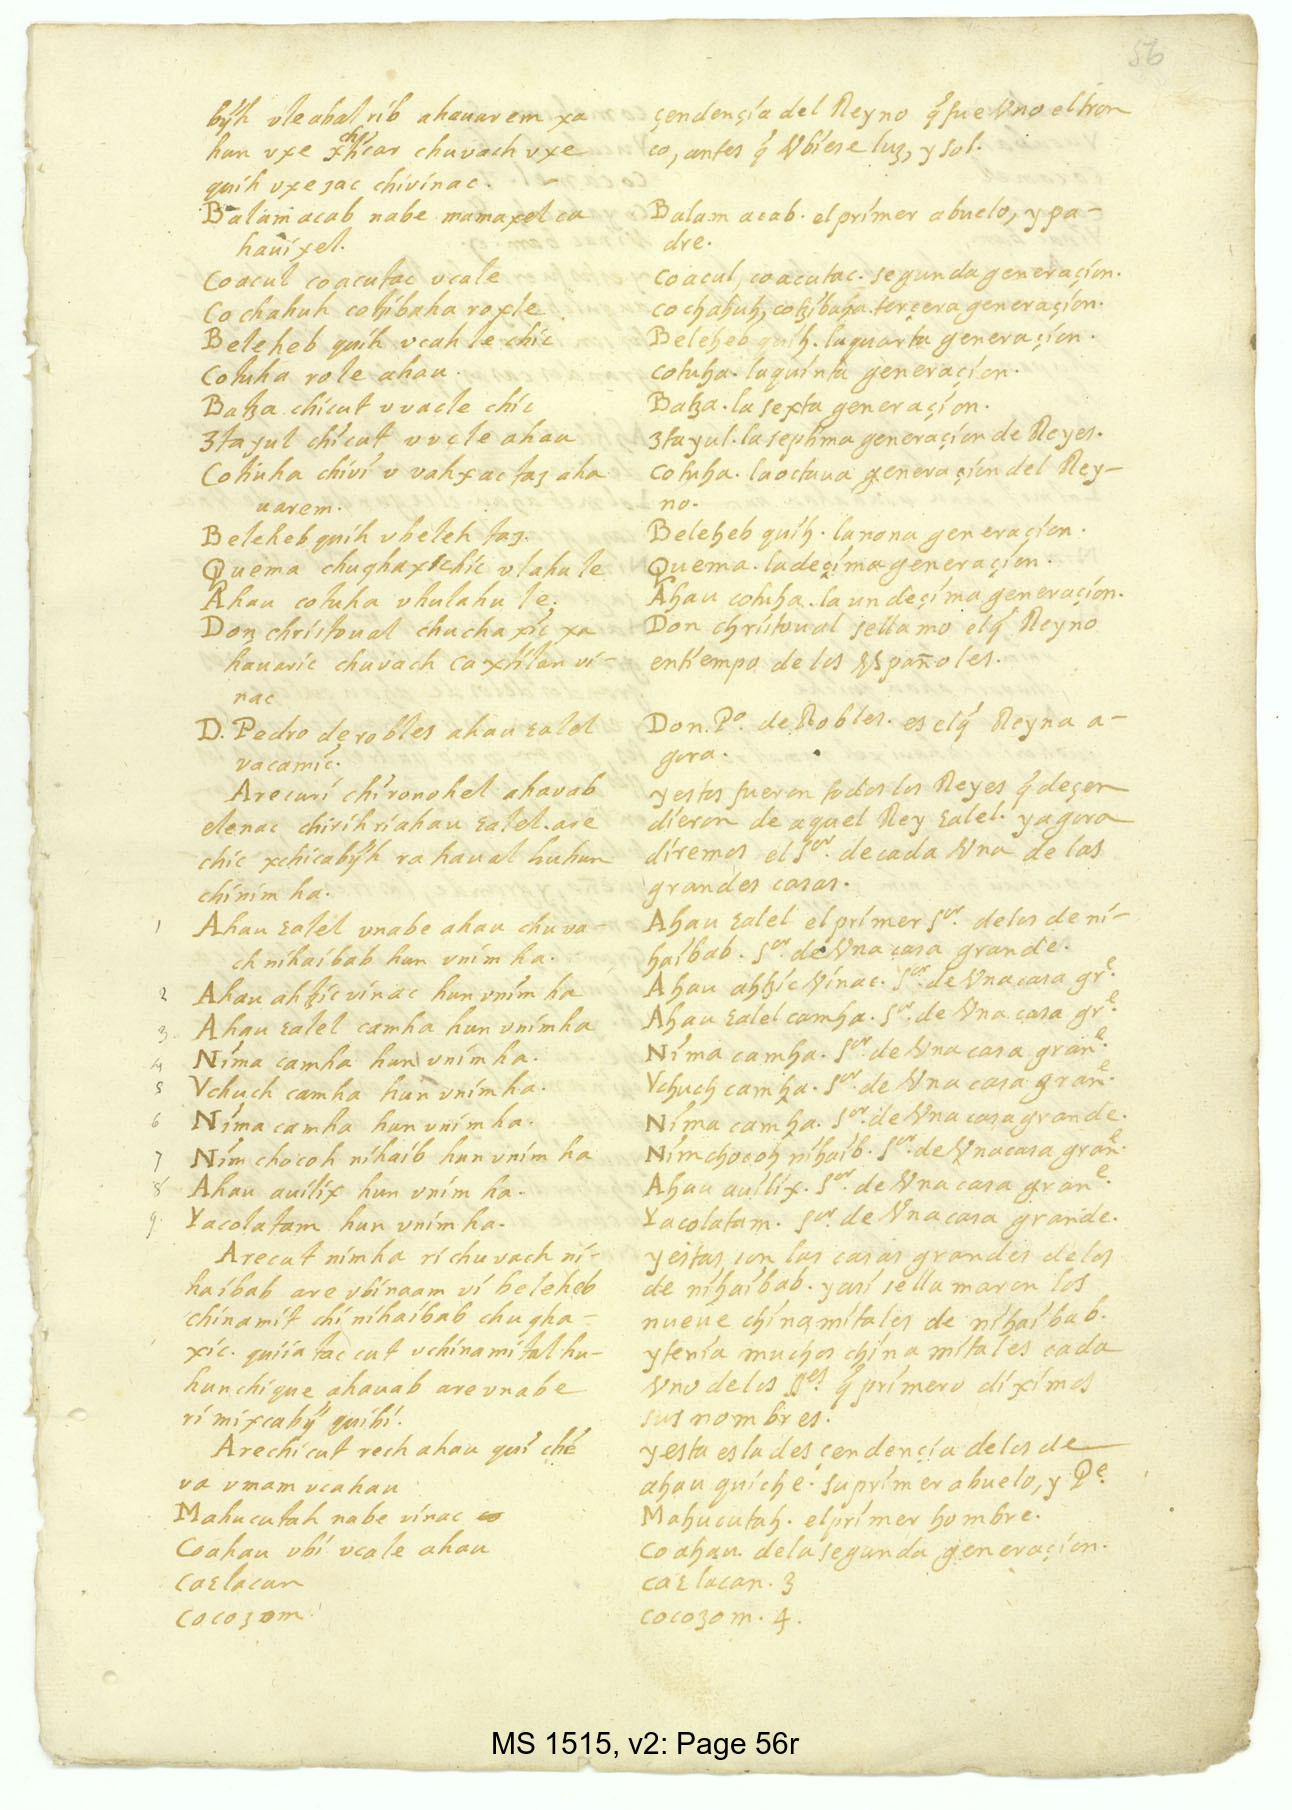 56
bijh vleabal rib ahauarem xa
hun vxe xchicar chuvach vxe
quih vxe zac chivinac.
Balam acab nabe mamaxel ca
hauixel.
Coacul coacutac vcale
Cochahuh cotzibaha roxle
Beleheb quih vcah le chic
Cotuha role ahau.
Batza chicut vvacle chic
ztayul chicut vvcle ahau
Cotuha chivi v vahxac taz aha
uarem.
Beleheb quih vbeleh taz.
Quema chughaxichic vlahule
Ahau cotuha vhulahu le.
Don christoual chuchaxic xa
hauaric chuvach caxtilan vi-
nac
D. Pedro de robles ahau ɛalel
vacamic.
Arecuri chironohel ahavab
elenac chirih riahau ɛalel. are
chic xchicabijh rahaual huhun
chinim ha.
1 Ahau ɛalel vnabe ahau chuva-
ch nihaibab hun vnim ha.
2 Ahau ahtzic vinac hun vnim ha
3 Ahau ɛalel camha hun vnimha
4 Nima camha hun vnim ha.
5 Vchuch camha hun vnimha.
6 Nima camha hun vnim ha.
7 Nim chocoh nihaib hun vnim ha
8 Ahau auilix hun vnim ha.
9 Yacolatam hun vnim ha.
Arecut nimha ri chuvach ni-
haibab are vbinaam vi beleheb
chinamit chi nihaibab chugha-
xic. quiia tac cut vchinamital hu-
hunchique ahauab are vnabe
ri mixcabij quibi.
Arechicut rech ahau qui che
va vmam vcahau
Mahucutah nabe vinac
Coahau vbi vcale ahau
Caɛlacan
Cocozom
çendençia del Reyno q̃ fue Vno el tron
co, antes q̃ Vbiese luz, y sol.
Balam acab. el primer abuelo, y pa-
dre.
Coacul, coacutac. segunda generaçion.
cochahuh, cotzibaha. terçera generaçion.
Beleheb quih. la quarta generaçion.
Cotuha. la quinta generaçion.
Batza. la sexta generaçion.
ztayul. la septima generaçion de Reyes.
Cotuha. la octaua generaçion del Rey-
no.
Beleheb quih. la nona generaçion.
Quema. la deçima generaçion.
Ahau cotuha. la un deçima generaçion.
Don christoual se llamo el q̃ Reyno
en tiempo de los Españoles.
Don. Pº. de Robles. es el q̃ Reyna a-
gora.
y estos fueron todos los Reyes q̃ deçen
dieron de aquel Rey ɛalel. y agora
diremos el Sor. de cada Vna de las
grandes casas.
Ahau ɛalel el primer Sor. de los de ni-
haibab. Sor. de Vna casa grande.
Ahau ahtzic Vinac. Sor. de Vna casa gre.
Ahau ɛalel camha. Sor. de Vna casa gre.
Nima camha. Sor. de Vna casa grane.
Vchuch camha. Sor. de Vna casa grane.
Nima camha. Sor. de Vna casa grande.
Nimchocoh nihaib. Sor. de Vna casa grane.
Ahau auilix. Sor. de Vna casa grane.
Yacolatam. Sor. de Vna casa grande.
y estas son las casas grandes de los
de nihaibab. y asi se llamaron los
nueue chinamitales de nihaibab.
y tenia muchos chinamitales cada
Vno de los Ses. q̃ primero diximos
sus nombres.
y esta es la desçendençia de los de
ahau quiche. su primer abuelo, y Pe.
Mahucutah. el primer hombre.
Coahau. de la segunda generaçion.
caɛlacan. 3
cocozom. 4.
MS 1515, v2: Page 56r